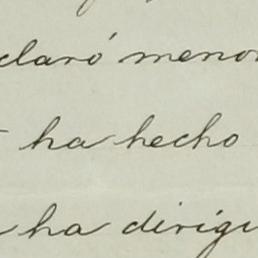 claró menor
ha hecho
ha dirigi